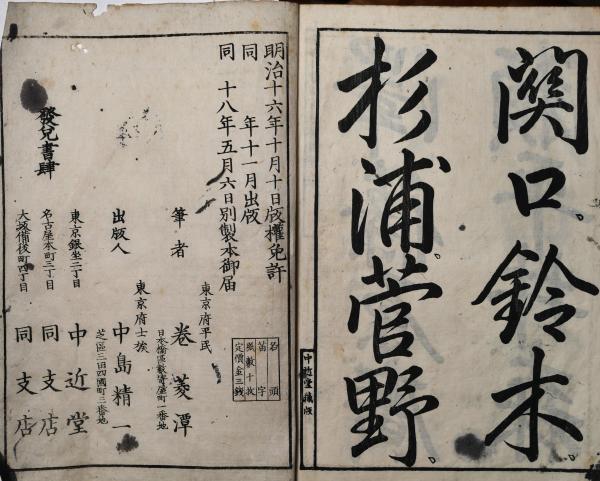 関口鈴木
杉浦菅野
中近堂蔵版
明治十六年十月十日版權免許
同　年十一月出版
同　十八年五月六日別製本御届
名頭
苗字
紙數十枚
定價金三錢
東京府平民
筆者　卷菱潭
日本橋區數寄屋町一番地
東京府士族
出版人　中島精一
芝區三田四國町二番地
發兌書肆
東京銀坐二丁目　中近堂
名古屋本町三丁目　同支店
大坂備後町四丁目　同支店